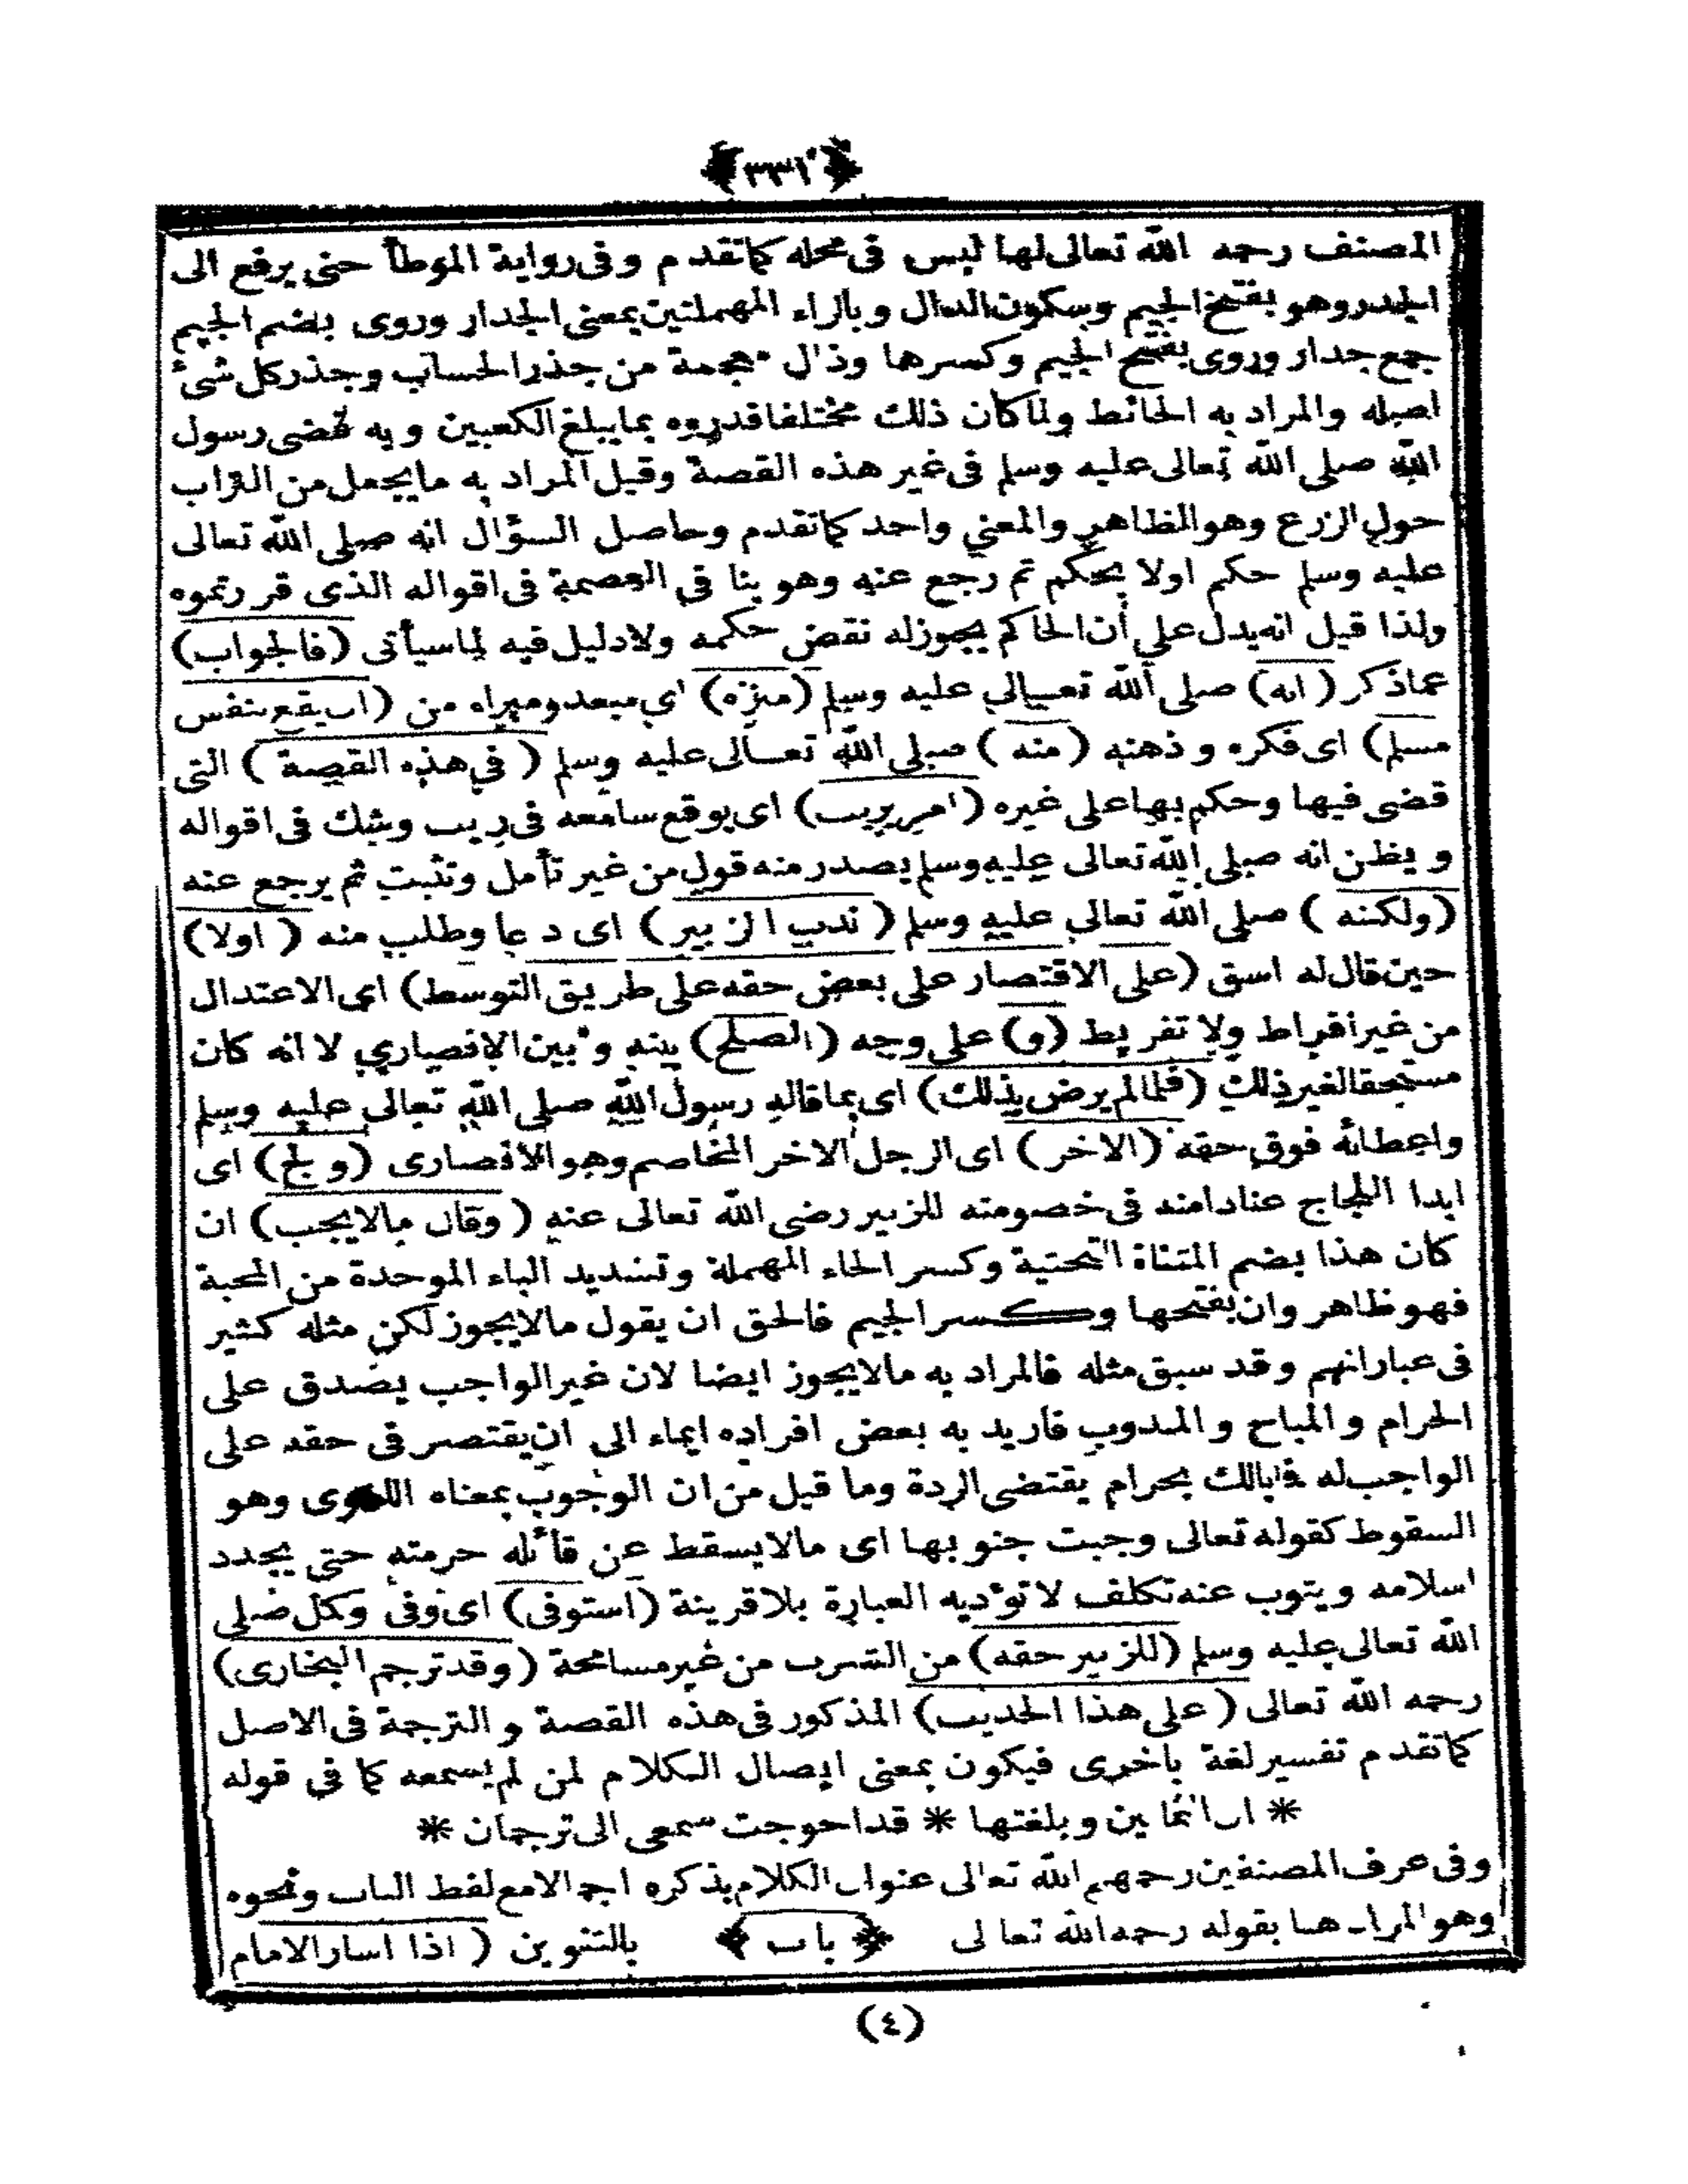 ﴿٣٣١﴾
المصنف رحمه الله تعالى لها ليس فى محله كما تقدم وفى رواية الموطأ حتى يرفع الى
الجدر وهو بفتح الجيم وسكون الدال وبالراء المهملتين بمعنى الجدار وروى بضم الجيم
جمع جدار وروى بفتح الجيم وكسرها وذال معجمة من جذر الحساب وجذر كل شئ
اصله والمراد به الحائط ولما كان ذلك مختلفا قدروه بما يبلغ الكعبين وبه قضى رسول
الله صلى الله تعالى عليه وسلم فى غير هذه القصة وقيل المراد به ما يجعل من التراب
حول الزرع وهو الظاهر والمعنى واحد كما تقدم وحاصل السؤال انه صلى الله تعالى
عليه وسلم حكم اولا بحكم ثم رجع عنه وهو ينافى العصمة فى اقواله الذى قررتموه
ولذا قيل انه يدل على أن الحاكم يجوز له نقض حكمه ولا دليل فيه لما سيأتى (فالجواب)
عما ذكر (انه) صلى الله تعالى عليه وسلم (منزه) اى مبعد ومبراه من (ان يقع بنفس
مسلم) اى فكره وذهنه (منه) صلى الله تعالى عليه وسلم (فى هذه القصة) التى
قضى فيها وحكم بها على غيره (امر يريب) اى يوقع سامعه فى ريب وشك فى اقواله
ويظن انه صلى الله تعالى عليه وسلم يصدر منه قول من غير تأمل وتثبت ثم يرجع عنه
(ولكنه) صلى الله تعالى عليه وسلم (ندب الزبير) اى دعا وطلب منه (اولا)
حين قال له اسق (على الاقتصار على بعض حقه على طريق التوسط) اى الاعتدال
من غير افراط ولا تفريط (و) على وجه (الصلح) بينه وبين الانصارى لا انه كان
مستحقا لغير ذلك (فلما لم يرض بذلك) اى بما قاله رسول الله صلى الله تعالى عليه وسلم
واعطائه فوق حقه (الاخر) اى الرجل الاخر المخاصم وهو الانصارى (ولج) اى
ابدا اللجاج عنادا منه فى خصومته للزبير رضى الله تعالى عنه (وقال مالا يجب) ان
كان هذا بضم المثناة التحتية وكسر الحاء المهملة وتشديد الباء الموحدة من المحبة
فهو ظاهر وان بفتحها وكسر الجيم فالحق ان يقول مالا يجوز لكن مثله كثير
فى عباراتهم وقد سبق مثله فالمراد به مالا يجوز ايضا لان غير الواجب يصدق على
الحرام والمباح والمندوب فاريد به بعض افراده ايماء الى ان يقتصر فى حقه على
الواجب له فما بالك بحرام يقتضى الردة وما قيل من ان الوجوب بمعناه اللغوى وهو
السقوط كقوله تعالى وجبت جنوبها اى مالا يسقط عن قائله حرمته حتى يجدد
اسلامه ويتوب عنه تكلف لا تؤديه العبارة بلا قرينة (استوفى) اى وفى وكمل صلى
الله تعالى عليه وسلم (للزبير حقه) من الشرب من غير مسامحة (وقد ترجم البخارى)
رحمه الله تعالى (على هذا الحديث) المذكور فى هذه القصة والترجمة فى الاصل
كما تقدم تفسير لغة باخرى فيكون بمعنى ايصال الكلام لمن لم يسمعه كما فى قوله
* ان الثمانين وبلغتها * قد احوجت سمعى الى ترجمان *
وفى عرف المصنفين رحمهم الله تعالى عنوان الكلام يذكره اجمالا مع لفظ الباب ونحوه
وهو المراد هنا بقوله رحمه الله تعالى ﴿باب﴾ بالتنوين (اذا اشار الامام
(٤)